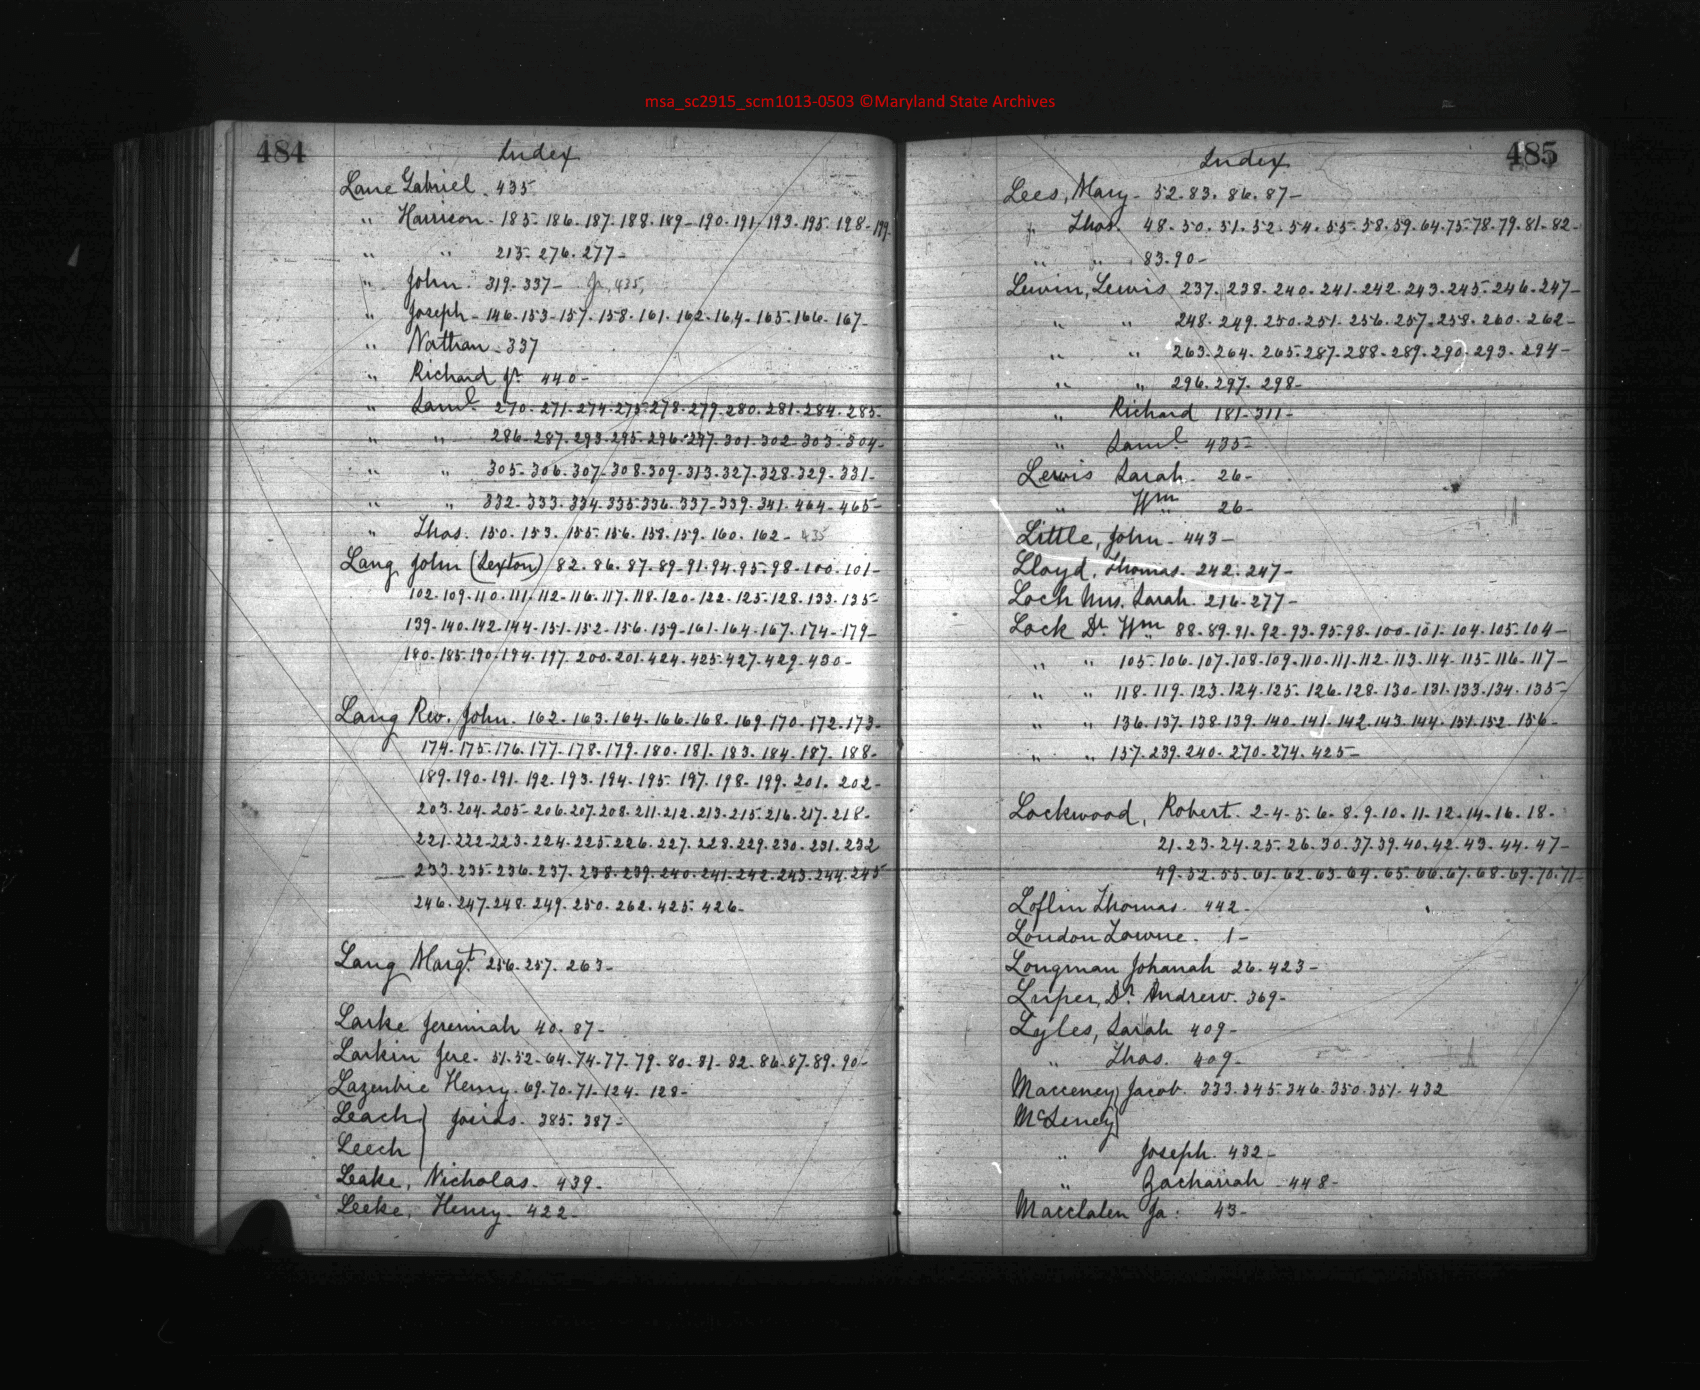 msa_sc2915_scm1013-0503 ©Maryland State Archives
484
Index
Lane Gabriel. 435
" Harrison. 185. 186. 187. 188. 189. 190. 191. 193. 195. 198. 199.
" " 215. 276. 277-
" John. 319. 337- Jr, 435,
" Joseph. 146. 153. 157. 158. 161. 162. 164. 165. 166. 167-
" Nathan. 337
" Richard Jr. 440-
" Saml. 270. 271. 274. 275. 278. 279. 280. 281. 284. 285-
" " 286. 287. 293. 295. 296. 297. 301. 302. 303. 304-
" " 305. 306. 307. 308. 309. 313. 327. 328. 329. 331-
" " 332. 333. 334. 335. 336. 337. 339. 341. 464. 465-
" Thos. 150. 153. 155. 156. 158. 159. 160. 162- 435
Lang John (Sexton) 82. 86. 87. 89. 91. 94. 95. 98. 100. 101-
102. 109. 110. 111. 112. 116. 117. 118. 120. 122. 125. 128. 133. 135-
139. 140. 142. 144. 151. 152. 156. 159. 161. 164. 167. 174. 179-
180. 185. 190. 194. 197. 200. 201. 424. 425. 427. 429. 430-
Lang Rev. John. 162. 163. 164. 166. 168. 169. 170. 172. 173-
174. 175. 176. 177. 178. 179. 180. 181. 183. 184. 187. 188-
189. 190. 191. 192. 193. 194. 195. 197. 198. 199. 201. 202-
203. 204. 205. 206. 207. 208. 211. 212. 213. 215. 216. 217. 218-
221. 222. 223. 224. 225. 226. 227. 228. 229. 230. 231. 232
233. 235. 236. 237. 238. 239. 240. 241. 242. 243. 244. 245
246. 247. 248. 249. 250. 262. 425. 426-
Lang Margt. 256. 257. 263-
Larke Jeremiah 40. 87-
Larkin Jere. 51. 52. 64. 74. 77. 79. 80. 81. 82. 86. 87. 89. 90-
Lazenbie Henry. 69. 70. 71. 124. 128-
Leach } 385. 387-
Leech
Leake, Nicholas. 439-
Leeke, Henry. 422-
485
Index
Lees, Mary. 52. 83. 86. 87-
" Thos. 48. 50. 51. 52. 54. 55. 58. 59. 64. 75. 78. 79. 81. 82-
" " 83. 90-
Lewin, Lewis 237. 238. 240. 241. 242. 243. 245. 246. 247-
" " 248. 249. 250. 251. 256. 257. 258. 260. 262-
" " 263. 264. 265. 287. 288. 289. 290. 293. 294-
" " 296. 297. 298-
" Richard 181. 311-
" Saml 435-
Lewis Sarah. 26-
" Wm 26-
Little, John. 443-
Lloyd, Thomas. 242. 247-
Loch Mrs. Sarah. 216. 277-
Lock Dr. Wm 88. 89. 91. 92. 93. 95. 98. 100. 101. 104. 105. 104-
" " 105. 106. 107. 108. 109. 110. 111. 112. 113. 114. 115. 116. 117-
" " 118. 119. 123. 124. 125. 126. 128. 130. 131. 133. 134. 135-
" " 136. 137. 138. 139. 140. 141. 142. 143. 144. 151. 152. 156-
" " 157. 239. 240. 270. 274. 425-
Lockwood, Robert. 2. 4. 5. 6. 8. 9. 10. 11. 12. 14. 16. 18-
21. 23. 24. 25. 26. 30. 37. 39. 40. 42. 43. 44. 47-
49. 52. 55. 61. 62. 63. 64. 65. 66. 67. 68. 69. 70. 71-
Loflin Thomas. 442-
London Towne. 1-
Longman Johanah 26. 423-
Luper, Dr. Andrew. 369-
Lyles, Sarah 409-
" Thos. 409-
Macceney } Jacob. 333. 345. 346. 350. 351. 432
McSeney
" Joseph. 432-
" Zachariah 448-
Macclalen Ja: 43-